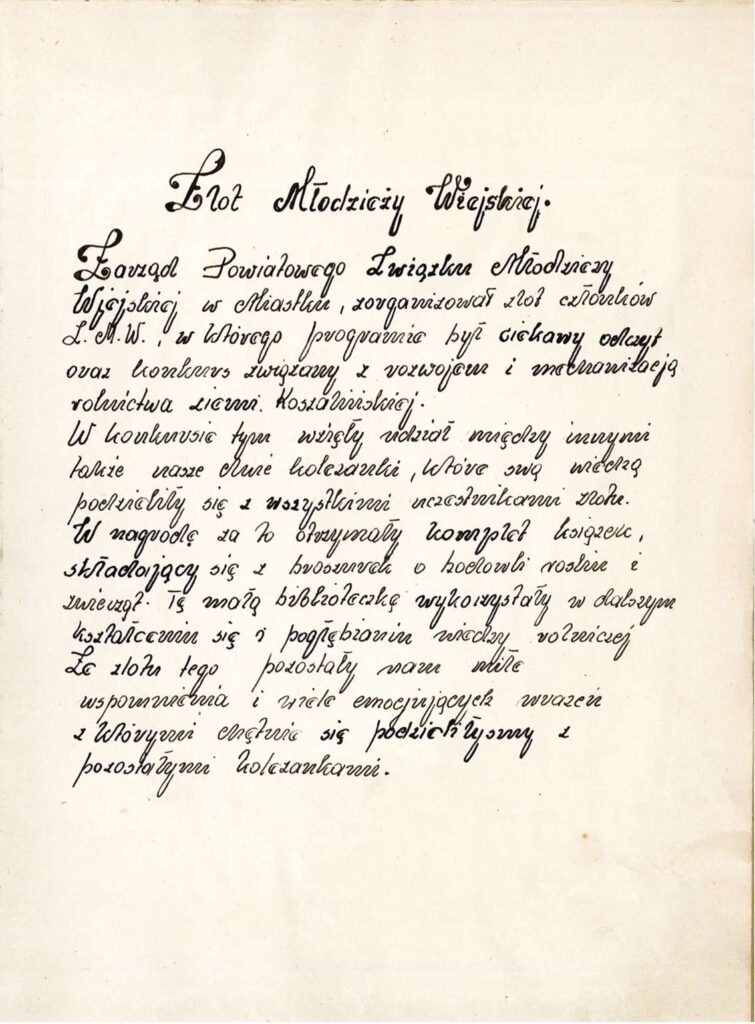 Zlot Młodzieży Wiejskiej.
Zarząd Powiatowego Związku Młodzieży
Wiejskiej w Miastku, zorganizował zlot członków
Z.M.W., w którego programie był ciekawy odczyt
oraz konkurs związany z rozwojem i mechanizacją
rolnictwa ziemi Koszalińskiej.
W konkursie tym wzięły udział między innymi
także nasze dwie koleżanki, które swą wiedzą
podzieliły się z wszystkimi uczestnikami zlotu.
W nagrodę za to otrzymały komplet książek,
składający się z broszurek o hodowli roślin i
zwierząt. Tę małą biblioteczkę wykorzystały w dalszym
kształceniu się i pogłębianiu wiedzy rolniczej
Ze zlotu tego pozostały nam miłe
wspomnienia i wiele emocjujących wrażeń
z którymi chętnie się podzieliłyśmy z
pozostałymi koleżankami.